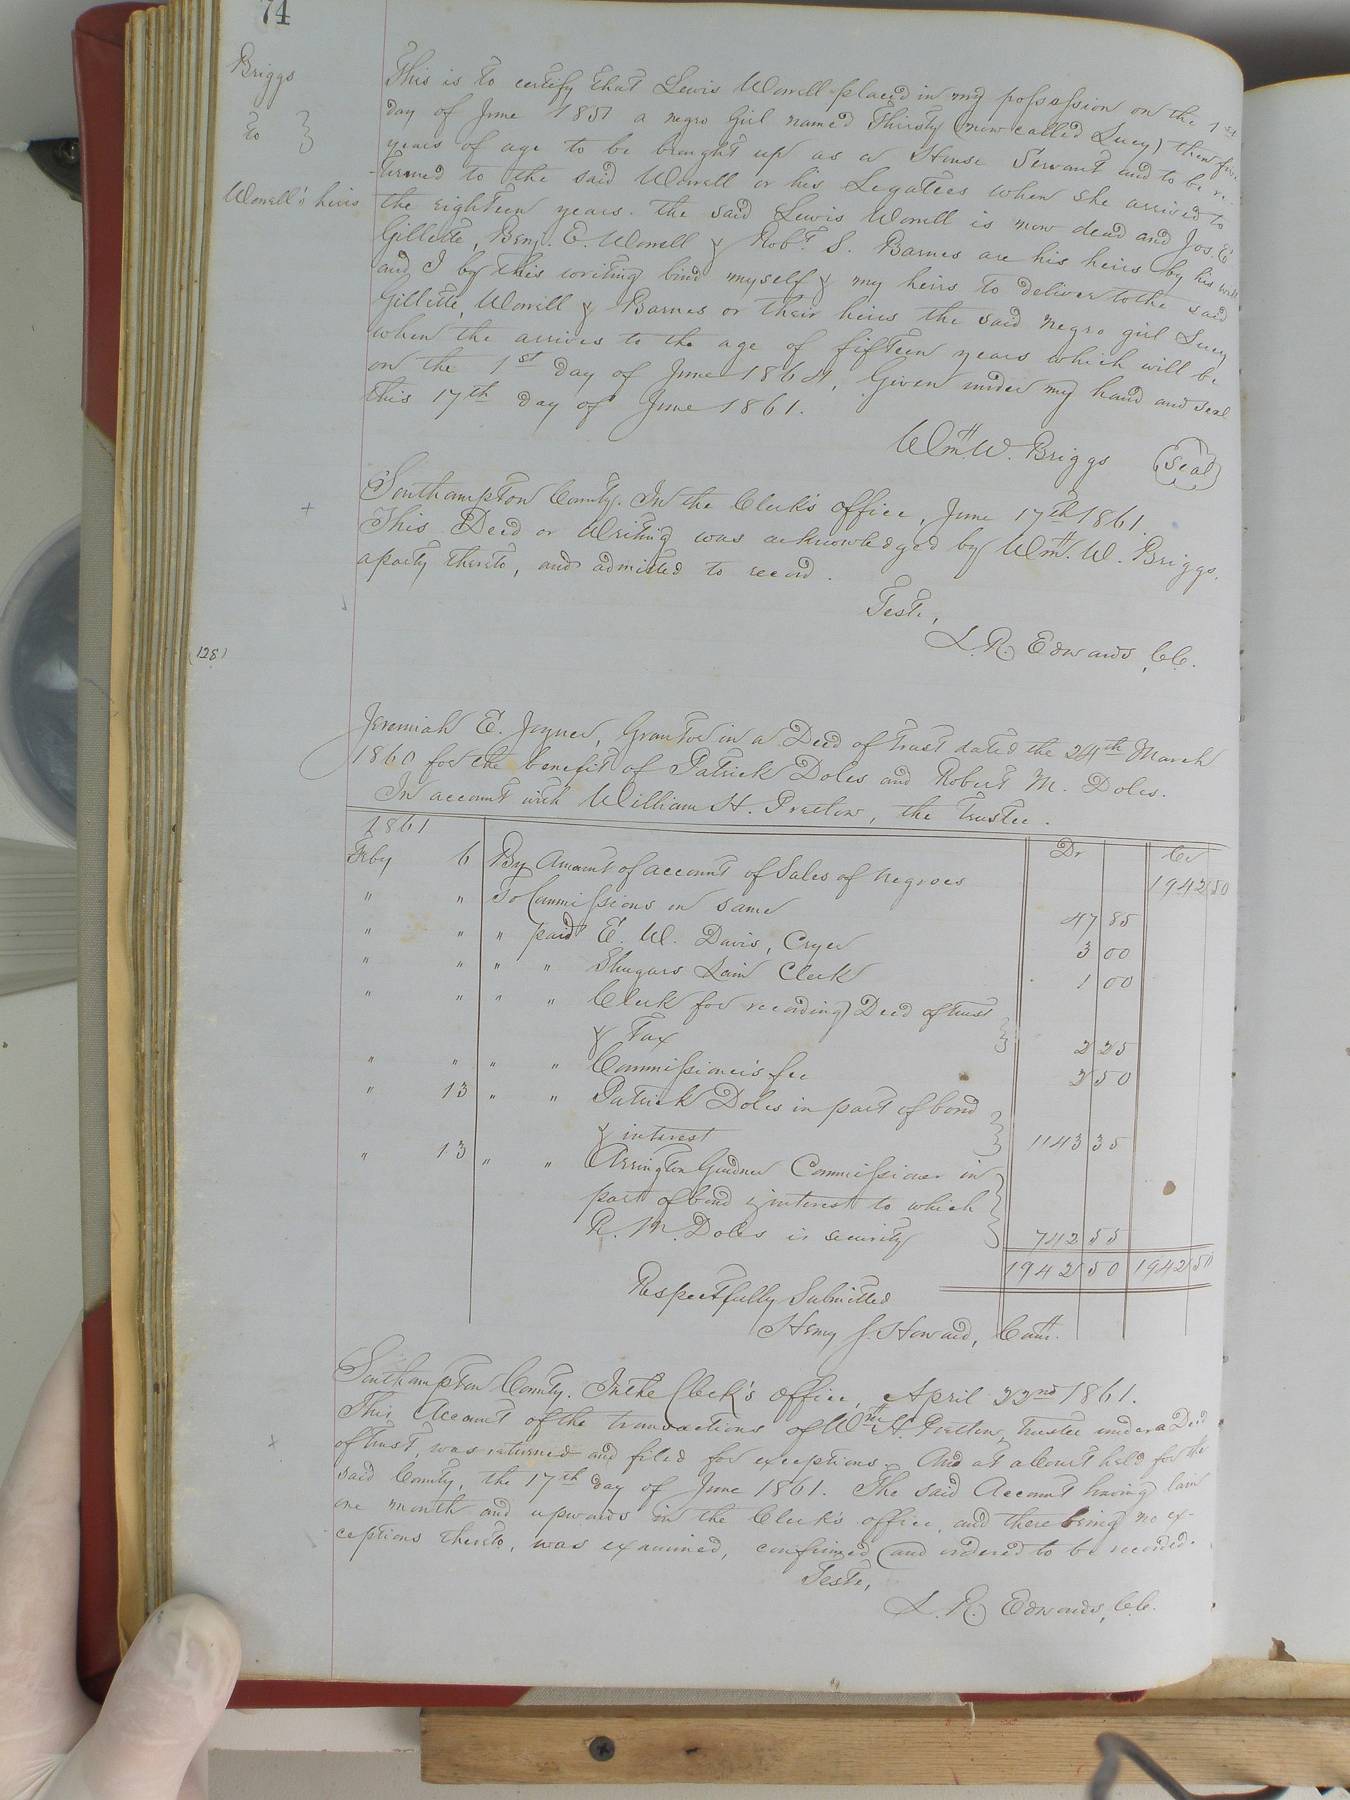 74
Briggs
to }
Worrell's heirs
This is to certify that Lewis Worrell placed in my possession on the 1st
day of June 1851 a negro Girl named Thirsty (now called Lucy) then five
years of age to be brought up as a House Servant and to be re-
-turned to the said Worrell or his Legatees when she arrived to
the eighteen years. the said Lewis Worrell is now dead and Jos. E.
Gillette, Benj. E. Worrell & Robt S. Barnes are his heirs by his will
and I by this writing bind myself & my heirs to deliver to the said
Gillette, Worrill & Barnes or their heirs the said negro girl Lucy
when the arrives to the age of fifteen years which will be
on the 1st day of June 1861, Given under my hand and seal
this 17th day of June 1861.
Wm. W. Briggs (Seal)
+ Southampton County. In the Clerk's office, June 17th 1861
This Deed or Writing was acknowledged by Wm. W. Briggs,
a party thereto, and admitted to record.
Teste,
L. R. Edwards, C.C.
(128)
Jeremiah E. Joyner, Grantor in a Deed of Trust dated the 24th March
1860 for the benefit of Patrick Doles and Robert M. Doles.
In account with William H. Pretlow, the Trustee.
1861 Dr Cr
Feby 6 By Amount of account of Sales of negroes 1942 50
" " To Commissions on same 47 85
" " " paid E. W. Davis, Cryer 3 00
" " " " Shugars Lain Clerk 1 00
" " " " Clerk for recording Deed of trust }
& Tax } 2 25
" " " " Commissioner's fee 2 50
" 13 " " Patrick Doles in part of bond }
& interest } 1143 35
" 13 " " Arrington Gardner Commissioner in }
part of bond & interest to which
R. M. Doles is security } 742 55
1942 50 1942 50
Respectfully Submitted
Henry J. Howard, Com.
Southampton County. In the Clerk's office, April 22nd 1861.
This Account of the transactions of Wm H. Pretlow, Trustee under a Deed
x of trust, was returned and filed for exceptions, And at a Court held for the
said County, the 17th day of June 1861. The said Account having lain
one month and upwards in the Clerk's office, and there being no ex-
ceptions thereto, was examined, confirmed and ordered to be recorded.
Teste,
L. R. Edwards, C.C.